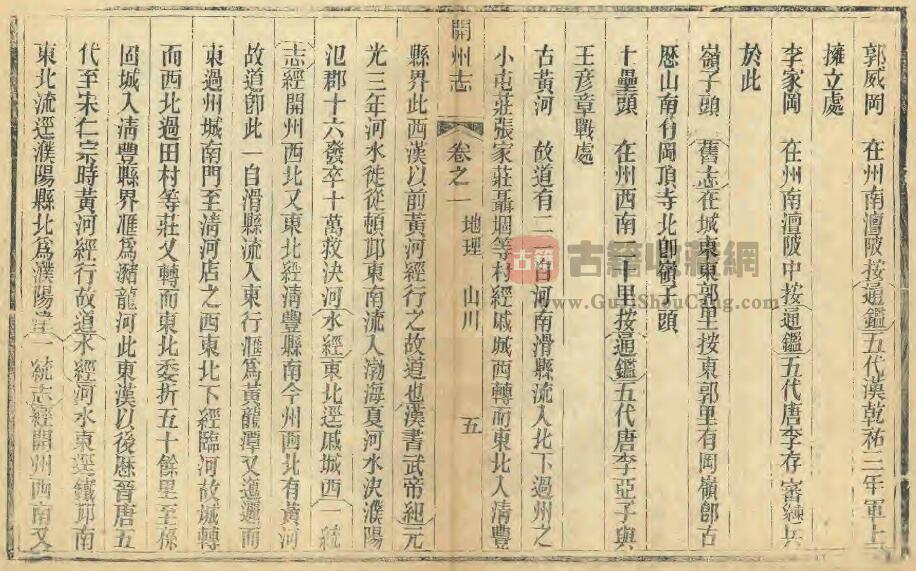 郭威岡　在州南澶陂按通鑑五代漢乾祐二年軍士
擁立處
李家岡　在州南澶陂中按通鑑五代唐李存審練兵
於此
嶺子頭　舊志在城東東郭里按東郭里有岡嶺卽古
歷山南有岡頂寺北卽嶺子頭
十壘頭　在州西南二十里按通鑑五代唐李亞子與
王彥章戰處
古黃河　故道有二一自河南滑縣流入北下過州之
小屯莊張家莊聶堌等村經戚城西轉而東北入清豐
開州志　卷之一　地理　山川　五
縣界此西漢以前黃河經行之故道也漢書武帝紀元
光三年河水徙從頓邱東南流入渤海夏河水決濮陽
汜郡十六發卒十萬救決河水經東北逕戚城西一統
志經開州西北又東北經清豐縣南今州西北有黃河
故道卽此一自滑縣流入東行滙爲黃龍潭又迤邐而
東過州城南門至清河店之西東北下經臨河故城轉
而西北過田村等莊又轉而東北委折五十餘里至孫
固城入清豐縣界滙爲豬龍河此東漢以後歷晉唐五
代至宋仁宗時黃河經行故道水經河水東逕鐵邱南
東北流逕濮陽縣北爲濮陽津一統志經開州西南又
古籍收藏網
www.GuJiShouCang.com
古籍